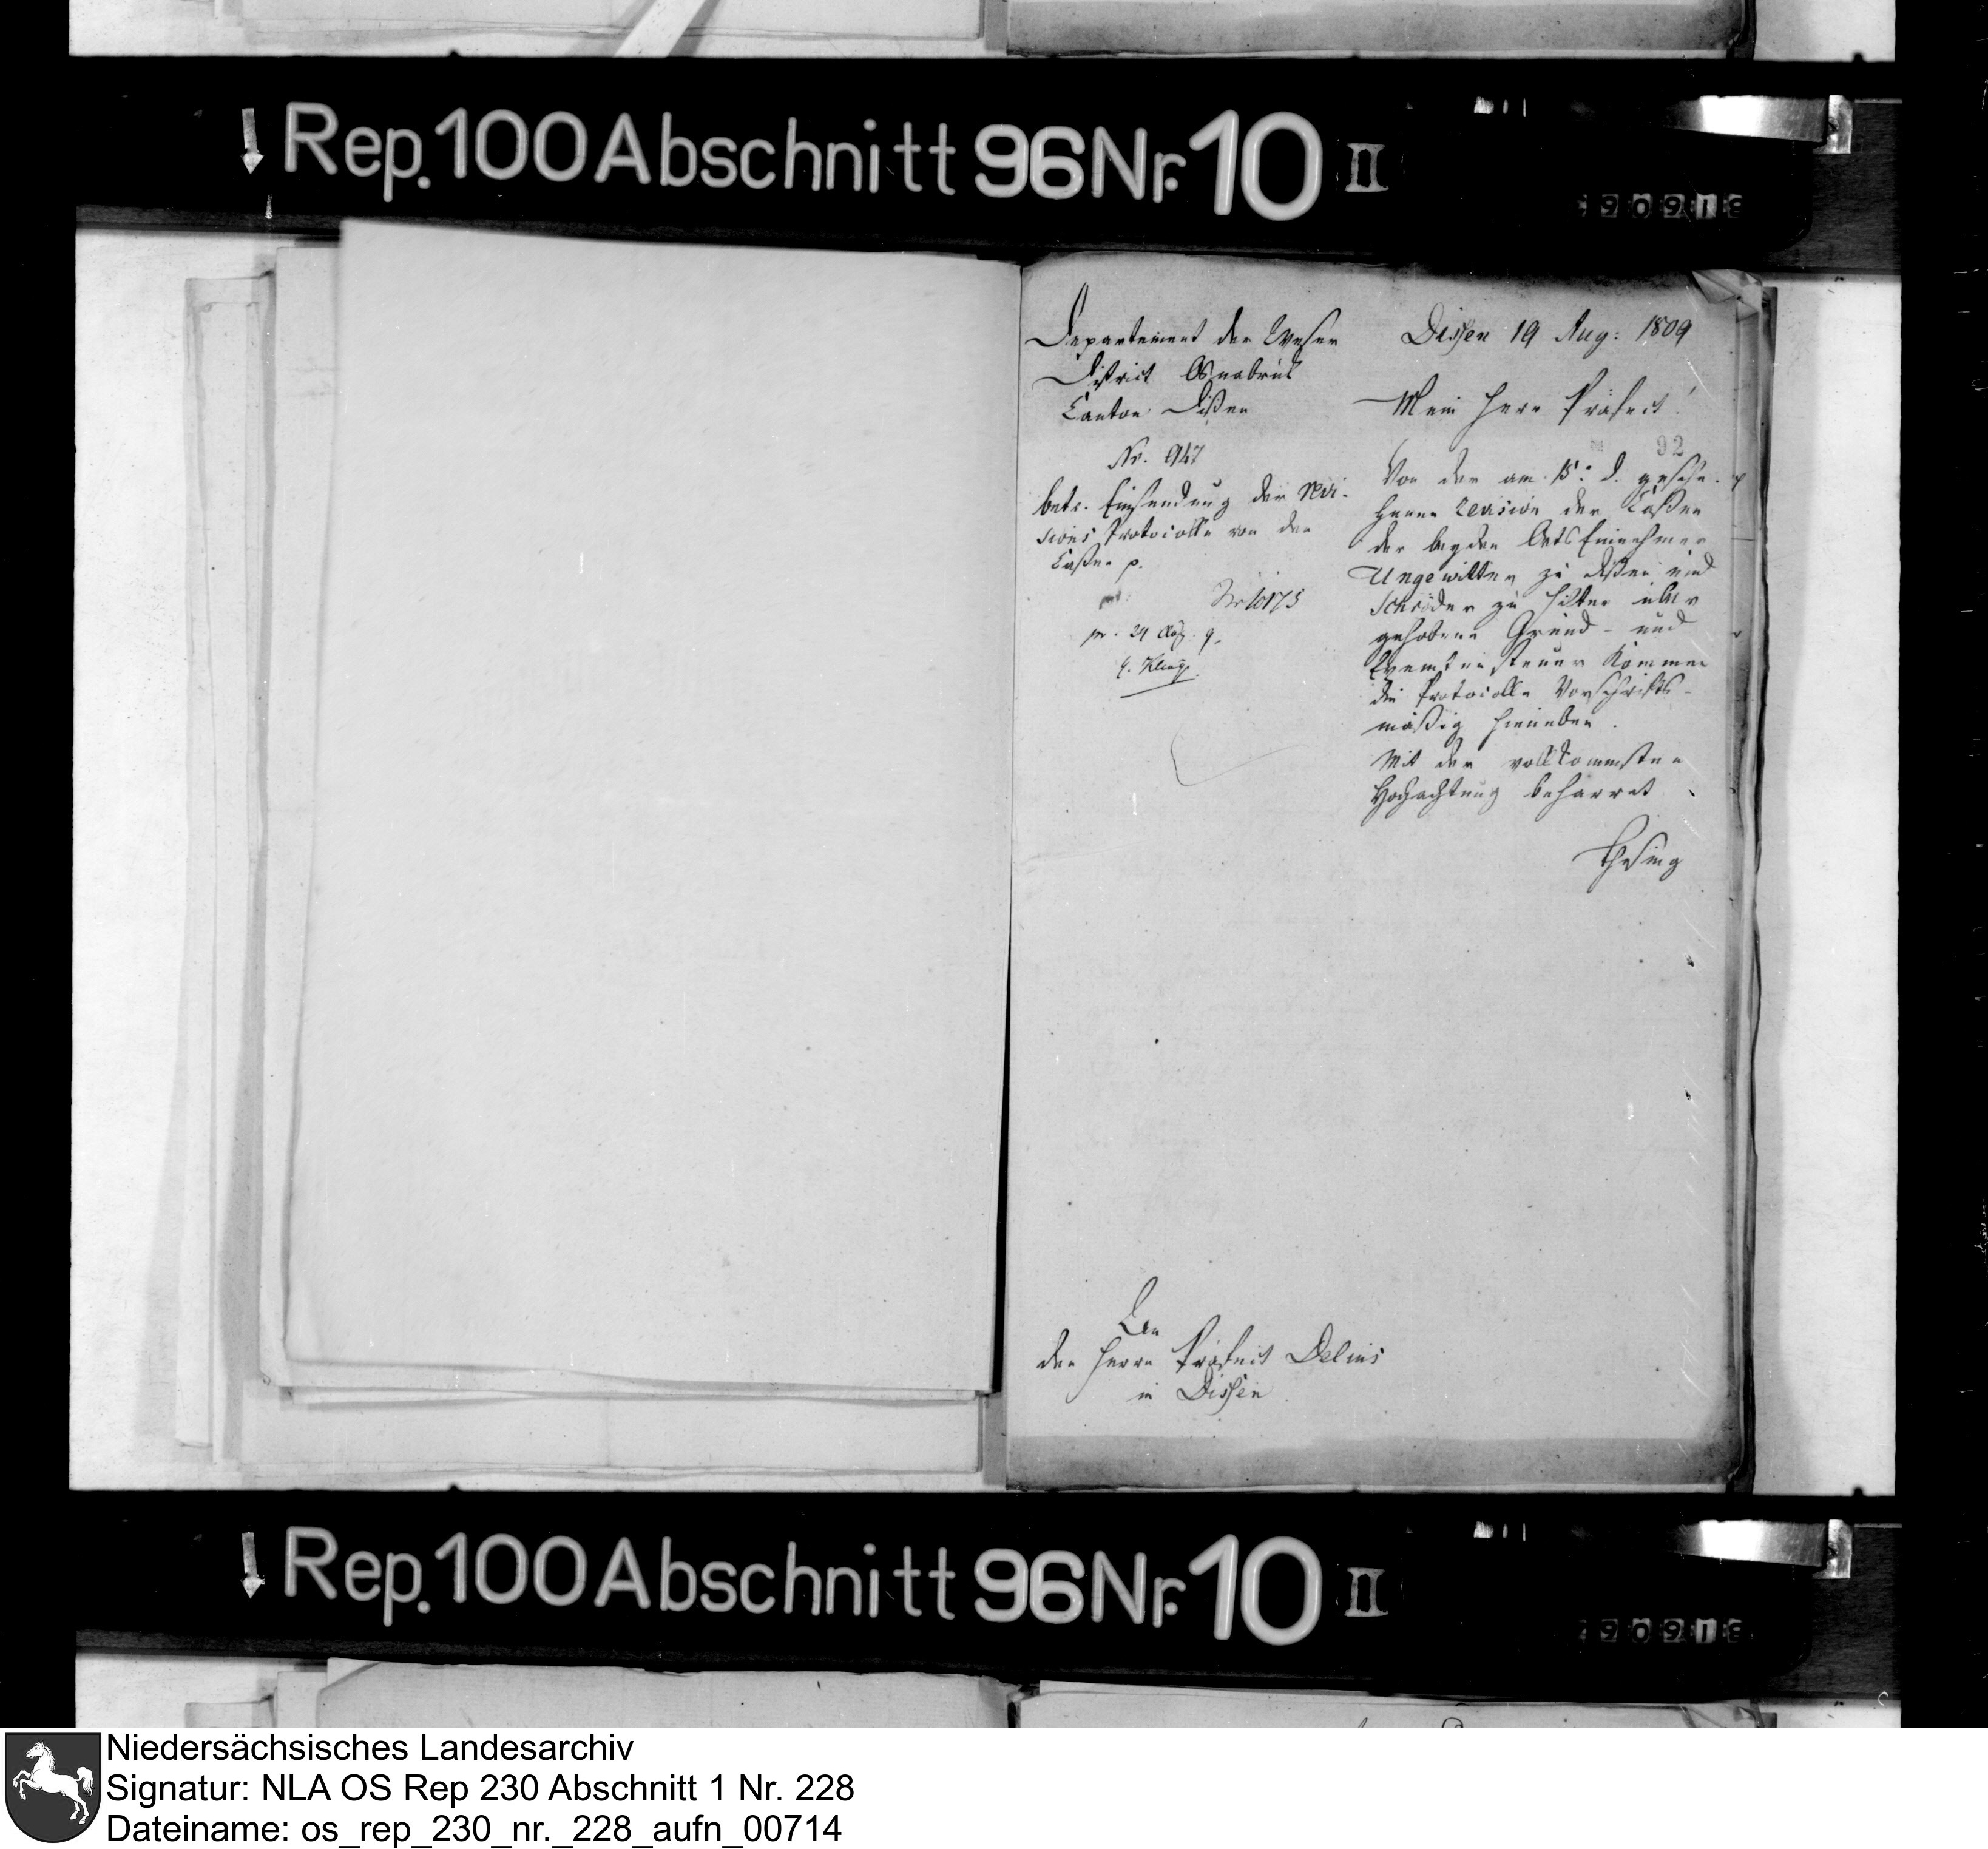 Rep. 100 Abschnitt 96 Nr. 10 II
Departement der Weser
District Osnabrück
Canton Dißen
Nr. 947
betr. Einsendung der Revi-
sions Protocolle von den
Caßen p.
Nr 10175
pr. 24 Aug. 9.
Dissen 19 Aug: 1809
Mein Herr Präfect!
92
Von der am 15. d. gesche-
henen Revision der Caßen
der beyden Orts Einnehmer
Ungewitter zu Dißen und
Schröder zu Hilter über
gehobene Grund- und
Exemtensteuer kommen
die Protocolle Vorschrifts-
mäßig hieneben.
Mit der vollkommsten
Hochachtung beharret
An
den Herrn Präfect Delius
in Dissen
Rep. 100 Abschnitt 96 Nr. 10 II
Niedersächsisches Landesarchiv
Signatur: NLA OS Rep 230 Abschnitt 1 Nr. 228
Dateiname: os_rep_230_nr._228_aufn_00714